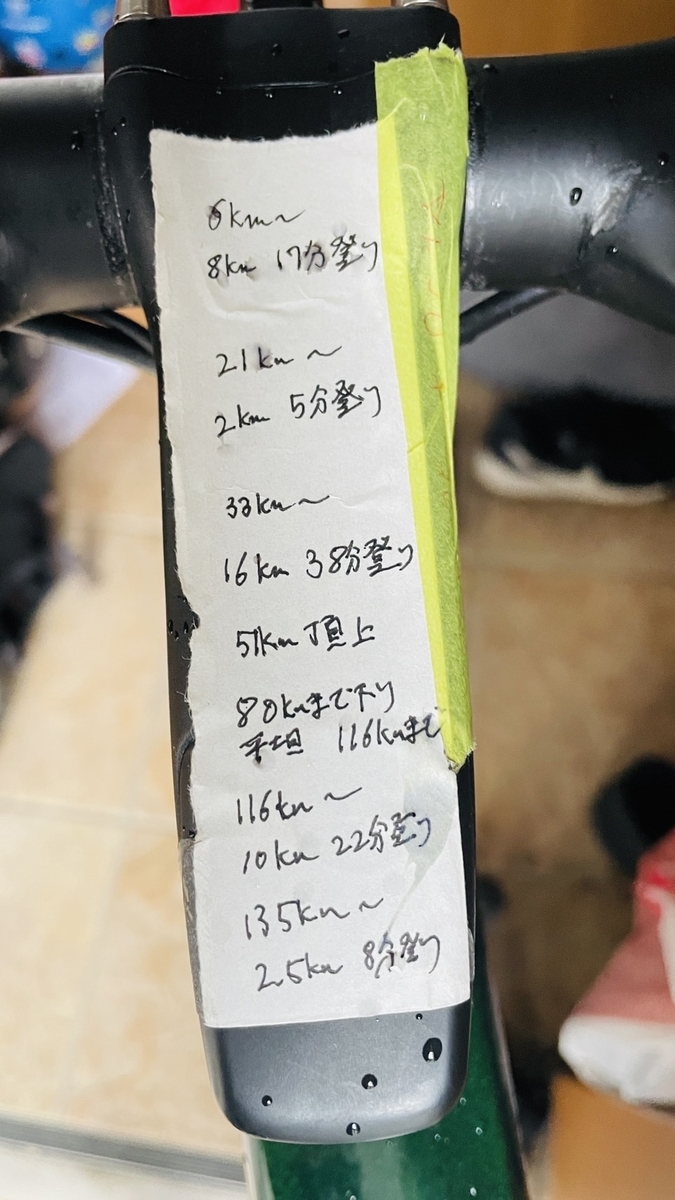 6km~
8km 17分登り
21km~
2km 5分登り
33km~
16km 38分登り
51km頂上
80kmまで下り
平坦 116kmまで
116km~
10km 22分登り
135km~
2.5km 8分登り